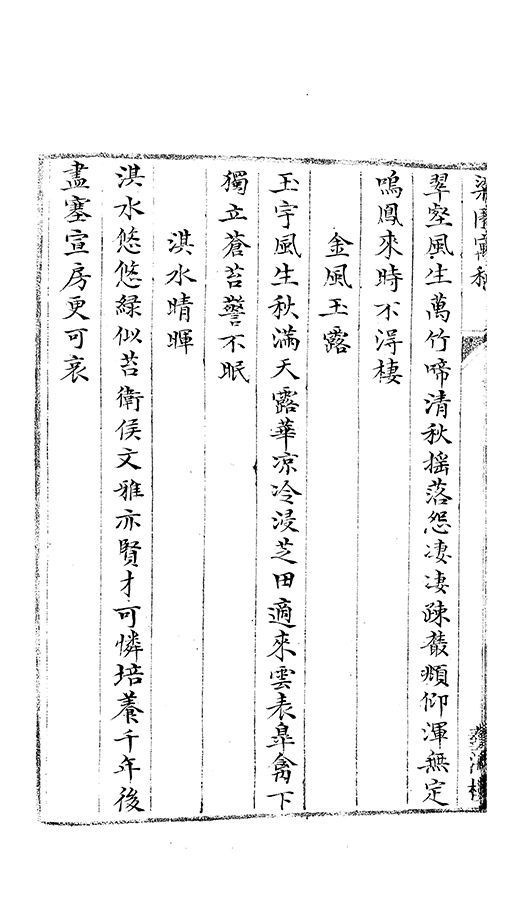 翠壑風生萬竹啼清秋揺落怨凄凄疎叢頫仰渾無定
鳴鳳來時不得棲
金風玉露
玉宇風生秋滿天露華凉冷浸芝田適來雲表皐禽下
獨立蒼苔警不眠
淇水晴暉
淇水悠悠緑似苔衛侯文雅亦賢才可憐培養千年後
盡塞宣房更可哀